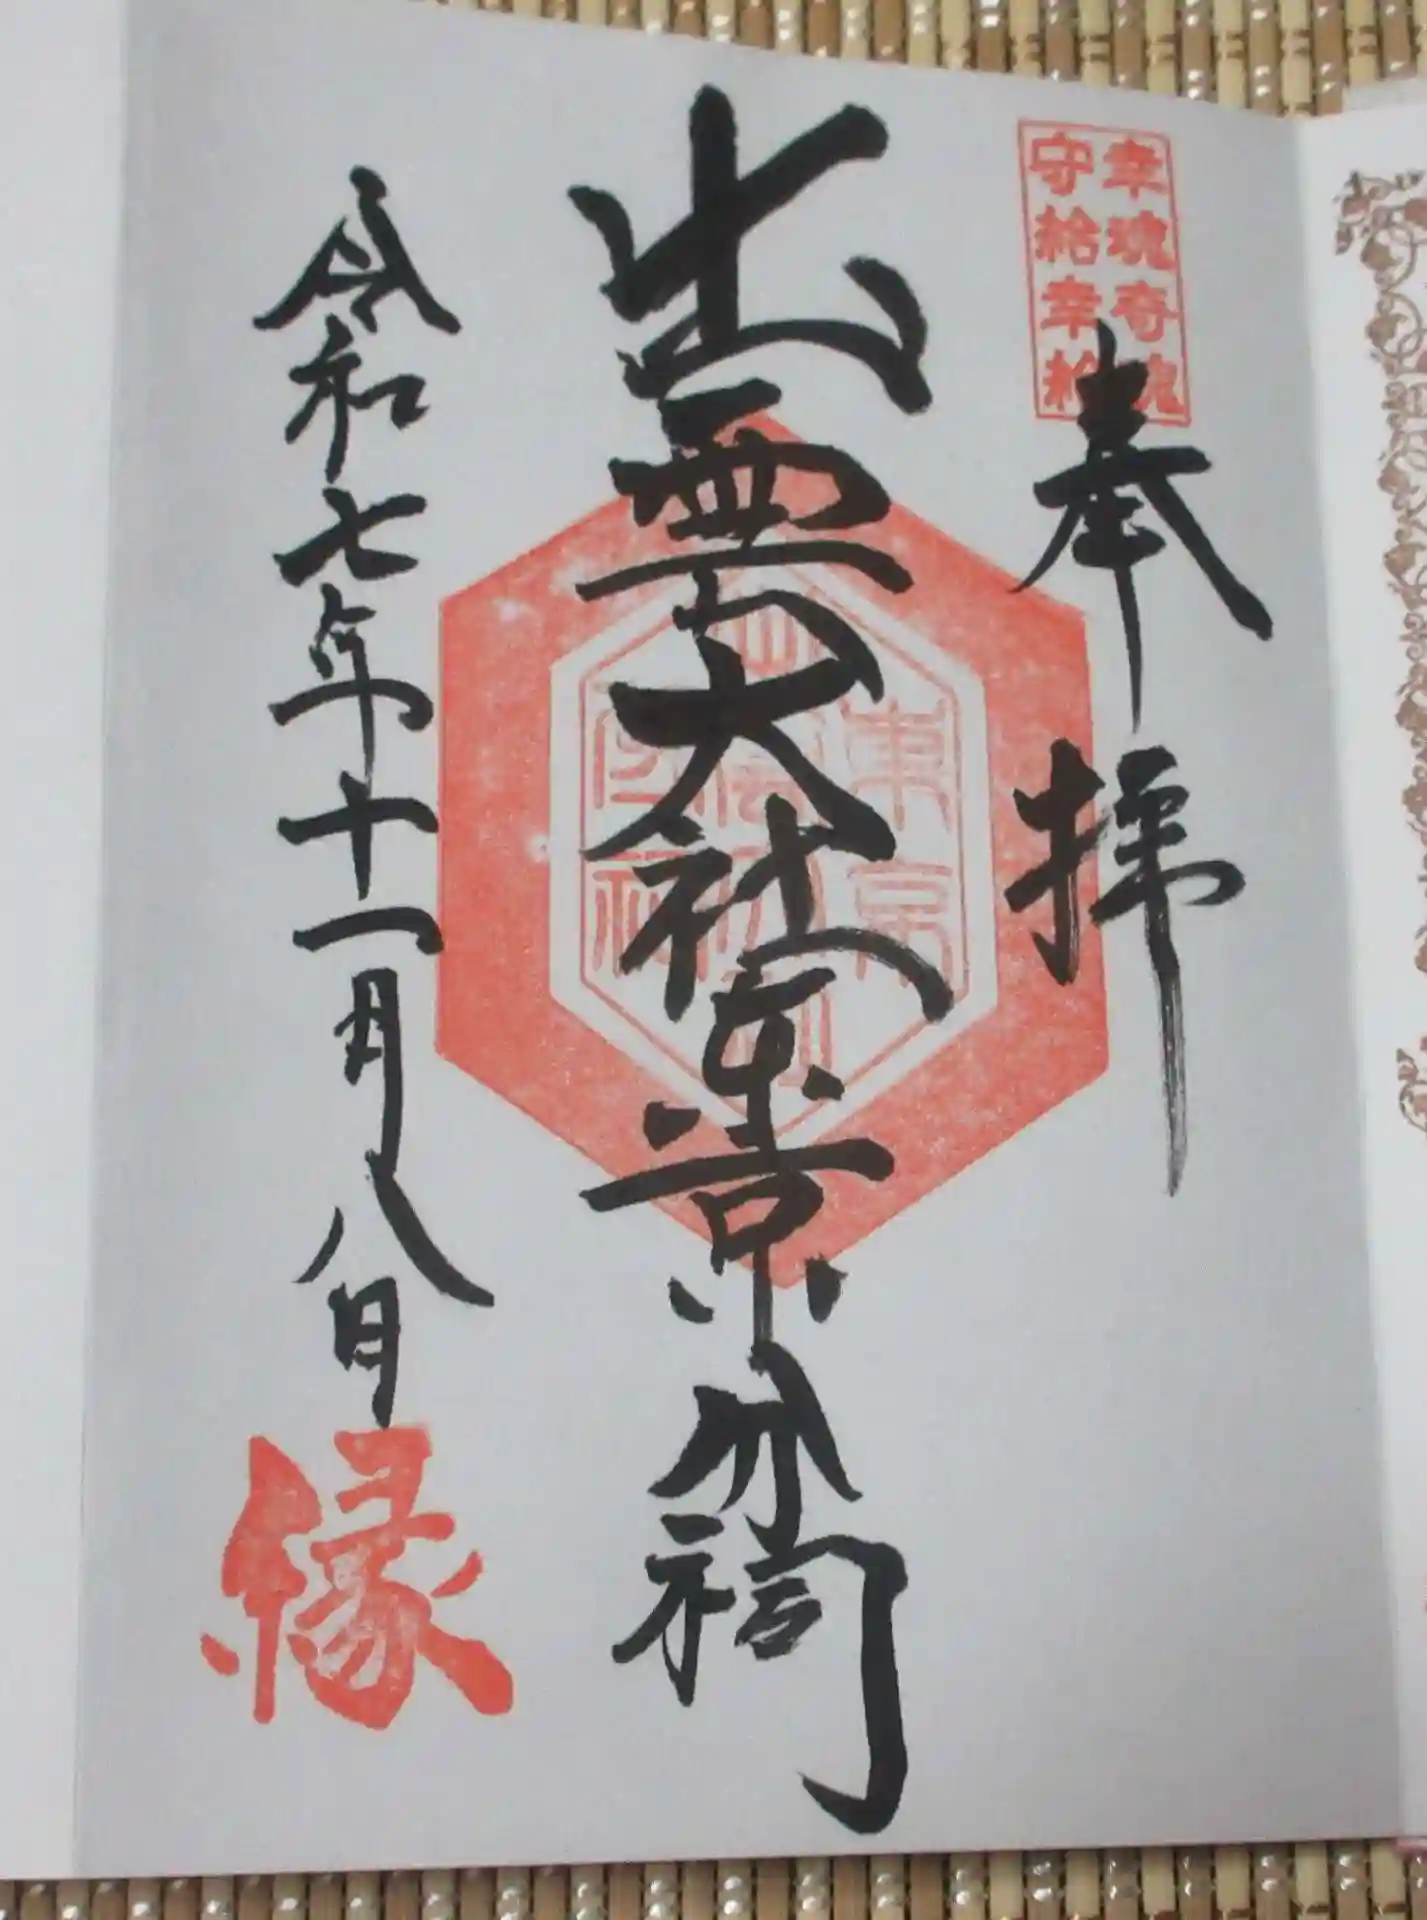 幸魂奇魂
守給幸給
奉拝
出雲大社東京分祠
東京
令和七年十一月八日
縁